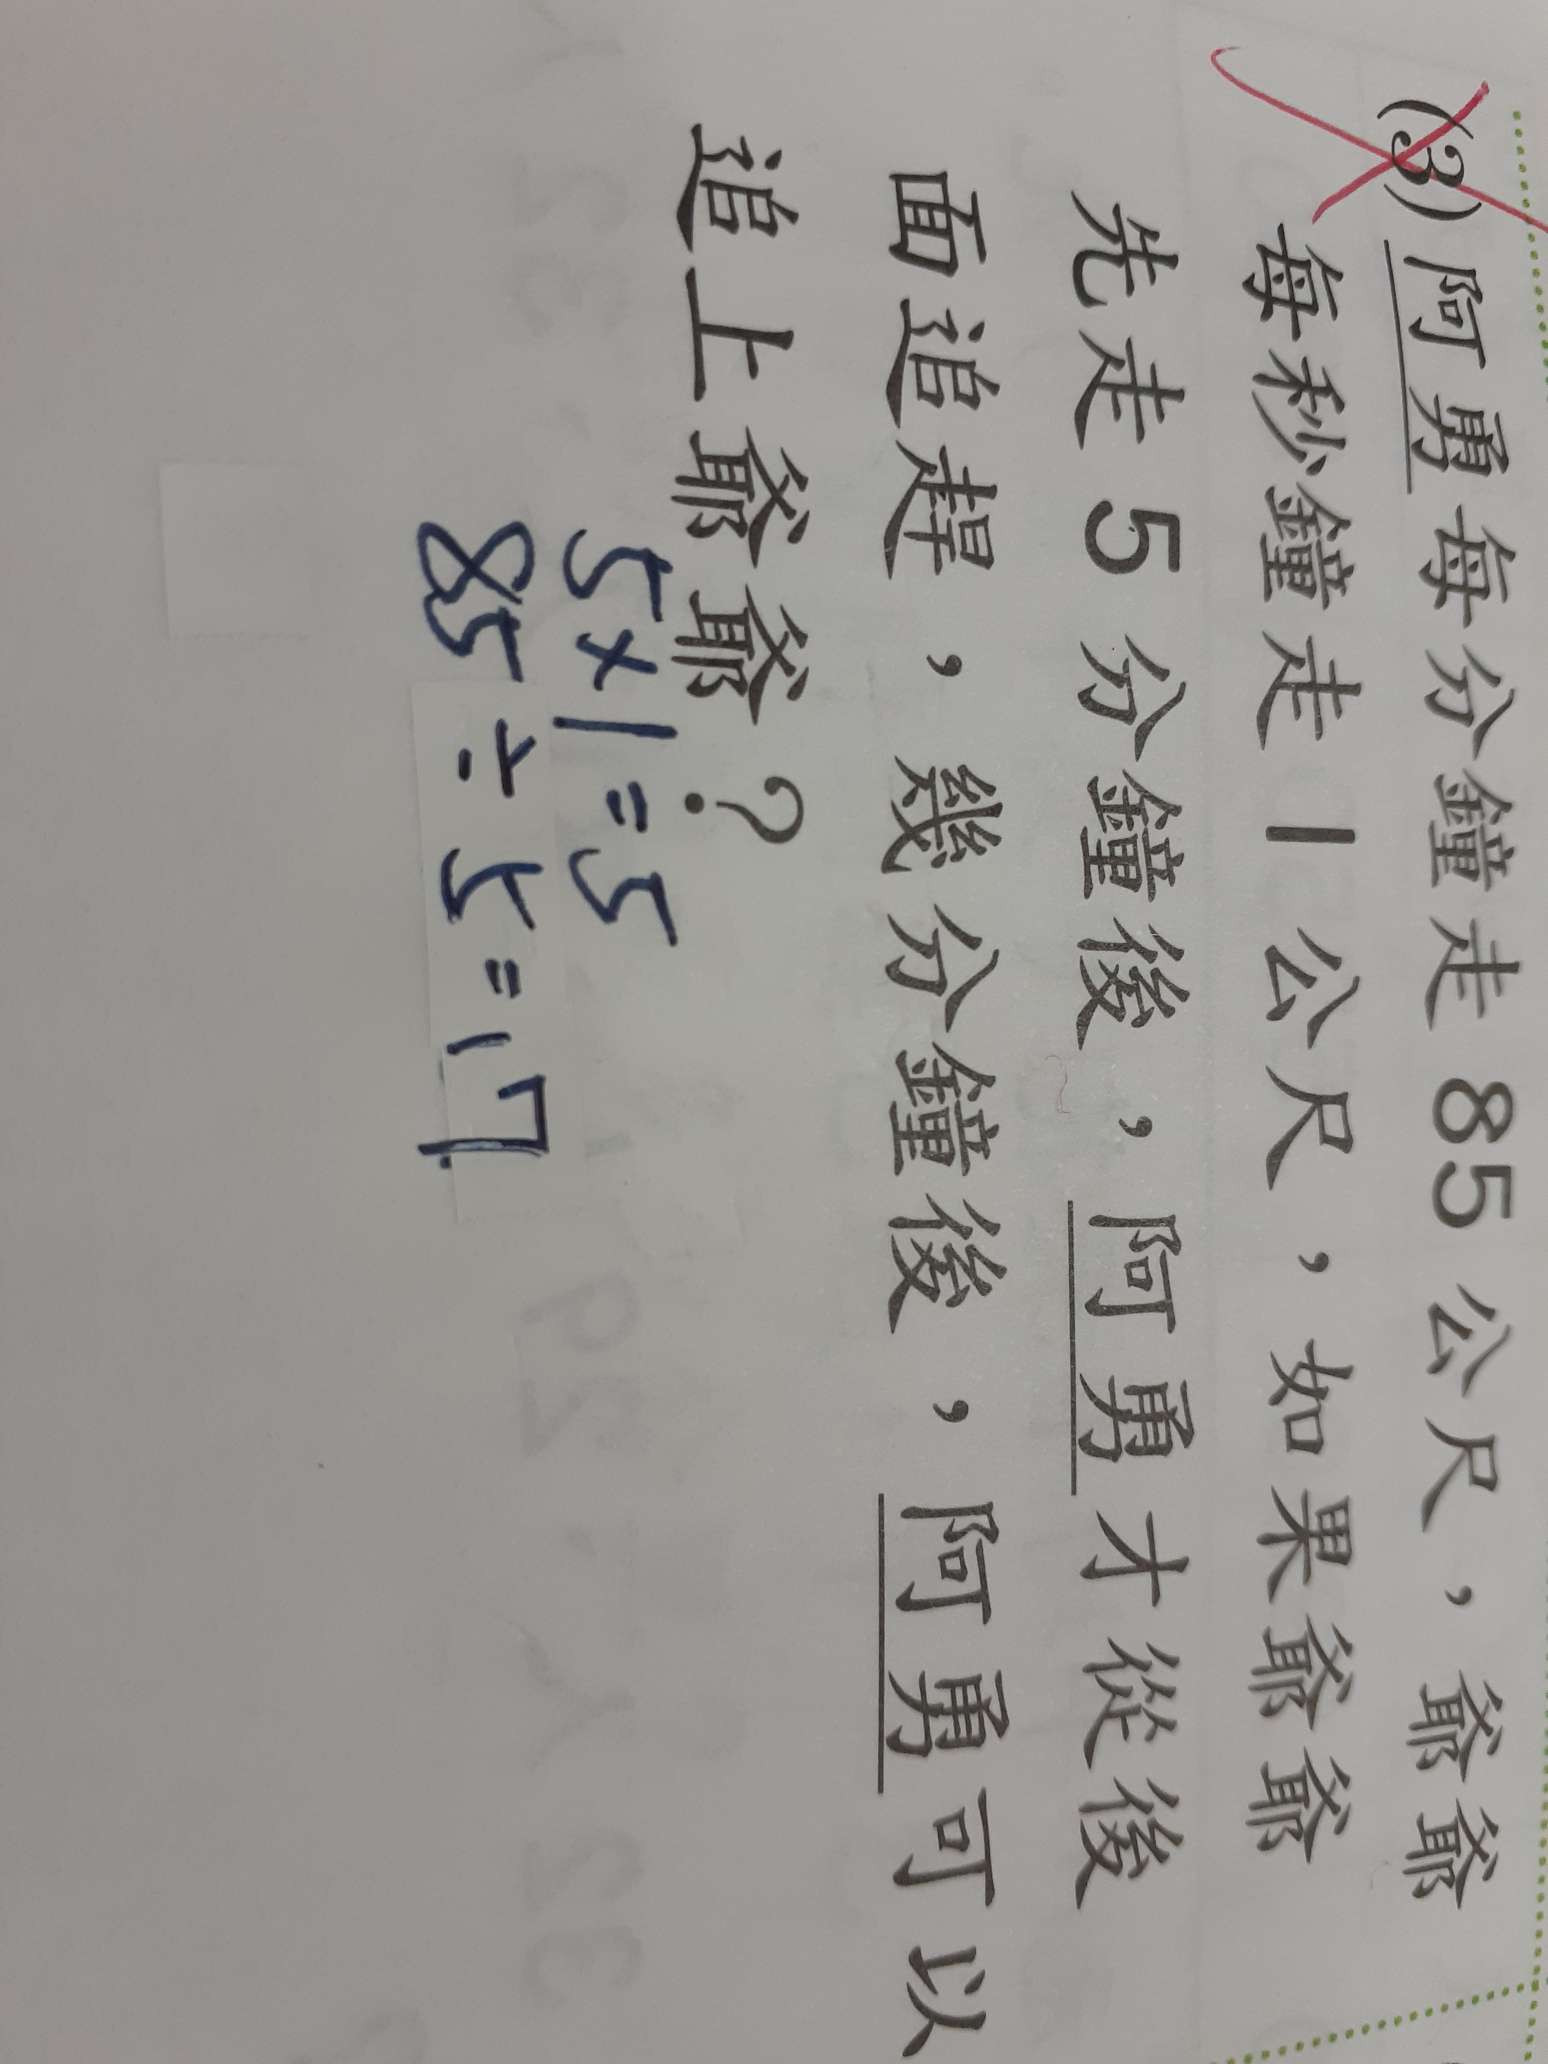 (3)阿勇每分鐘走 85 公尺，爺爺
每秒鐘走 1 公尺，如果爺爺
先走 5 分鐘後，阿勇才從後
面追趕，幾分鐘後，阿勇可以
追上爺爺？
5×1=5
85÷5=17